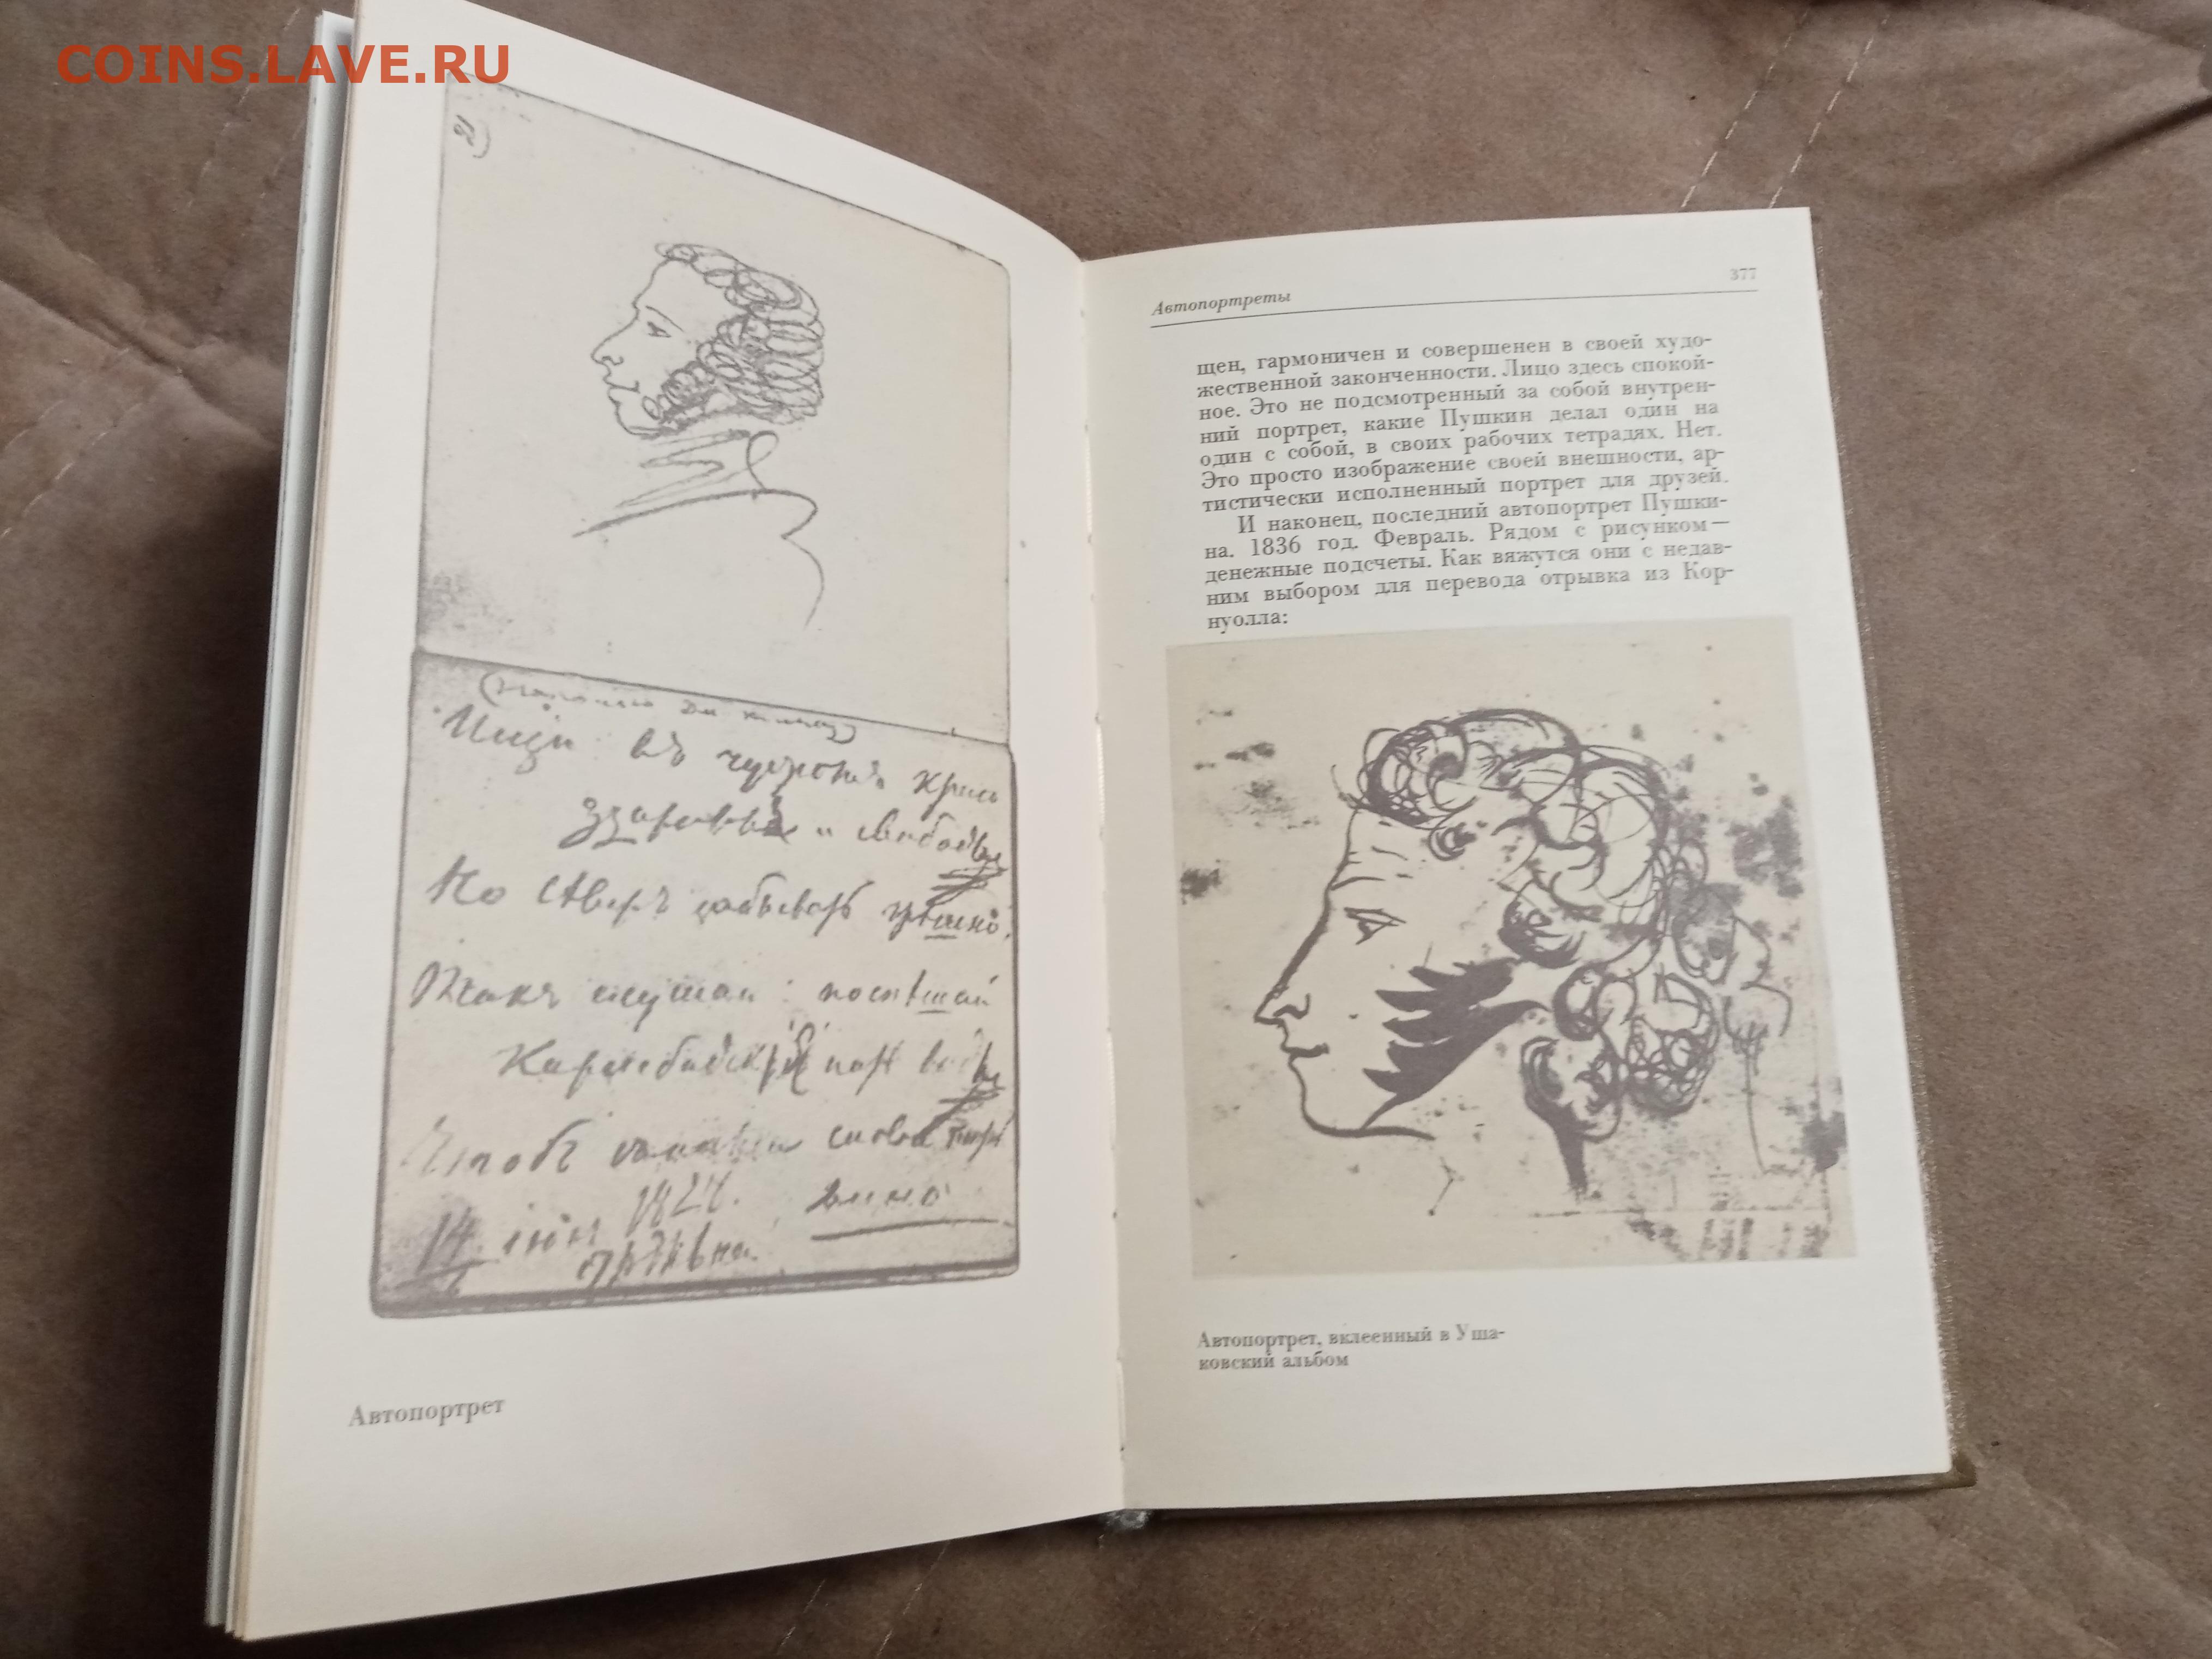 COINS.LAVE.RU
2)
Ищи въ чужомъ краю
Здоровья и свободы
Но Сѣверъ забывать грѣшно.
Такъ слушай: поспѣшай
Карлсбадскія пить воды
Чтобъ съ нами снова пить
вино
14 1828.
Автопортрет
Автопортреты
377
щен, гармоничен и совершенен в своей худо-
жественной законченности. Лицо здесь спокой-
ное. Это не подсмотренный за собой внутрен-
ний портрет, какие Пушкин делал один на
один с собой, в своих рабочих тетрадях. Нет.
Это просто изображение своей внешности, ар-
тистически исполненный портрет для друзей.
И наконец, последний автопортрет Пушки-
на. 1836 год. Февраль. Рядом с рисунком —
денежные подсчеты. Как вяжутся они с недав-
ним выбором для перевода отрывка из Кор-
нуолла:
Автопортрет, вклеенный в Уша-
ковский альбом